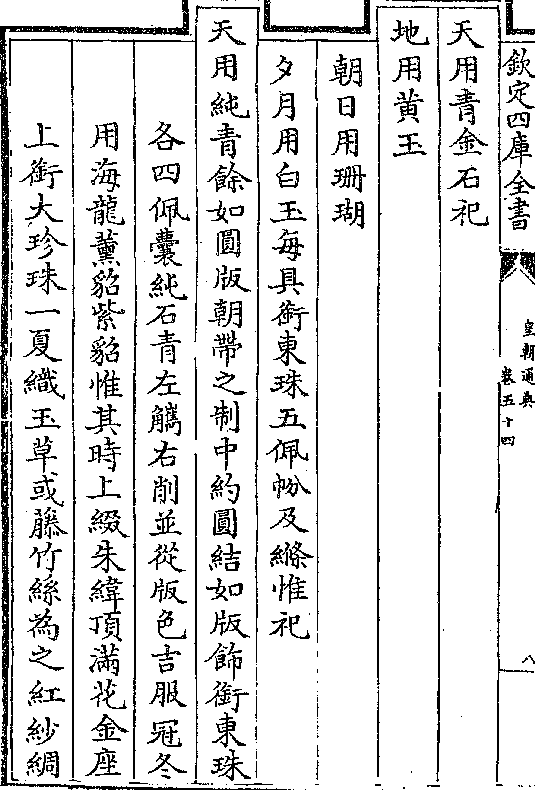 欽定四庫全書
皇朝通典
卷五十四
八
天用青金石祀
地用黃玉
朝日用珊瑚
夕月用白玉每具銜東珠五佩帉及縧惟祀
天用純青餘如圓版朝帶之制中約圓結如版飾銜東珠
各四佩囊純石青左觿右削並從版色吉服冠冬
用海龍薰貂紫貂惟其時上綴朱緯頂滿花金座
上銜大珍珠一夏織玉草或藤竹絲為之紅紗綢